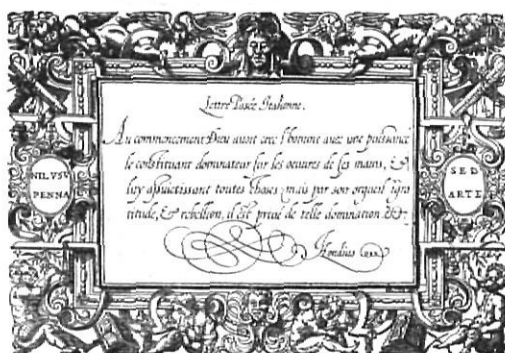 Lettre Pasée Italienne.
Au commencement Dieu avoit creé l'homme avec une puissance
le constituant dominateur sur les oeuvres de ses mains, &
luy assuiectissant toutes choses, mais par son orgueil igra
titude, & rebellion, il est privé de telle domination &c
NIL VSV
PENNA
SED
ARTE
Hondius